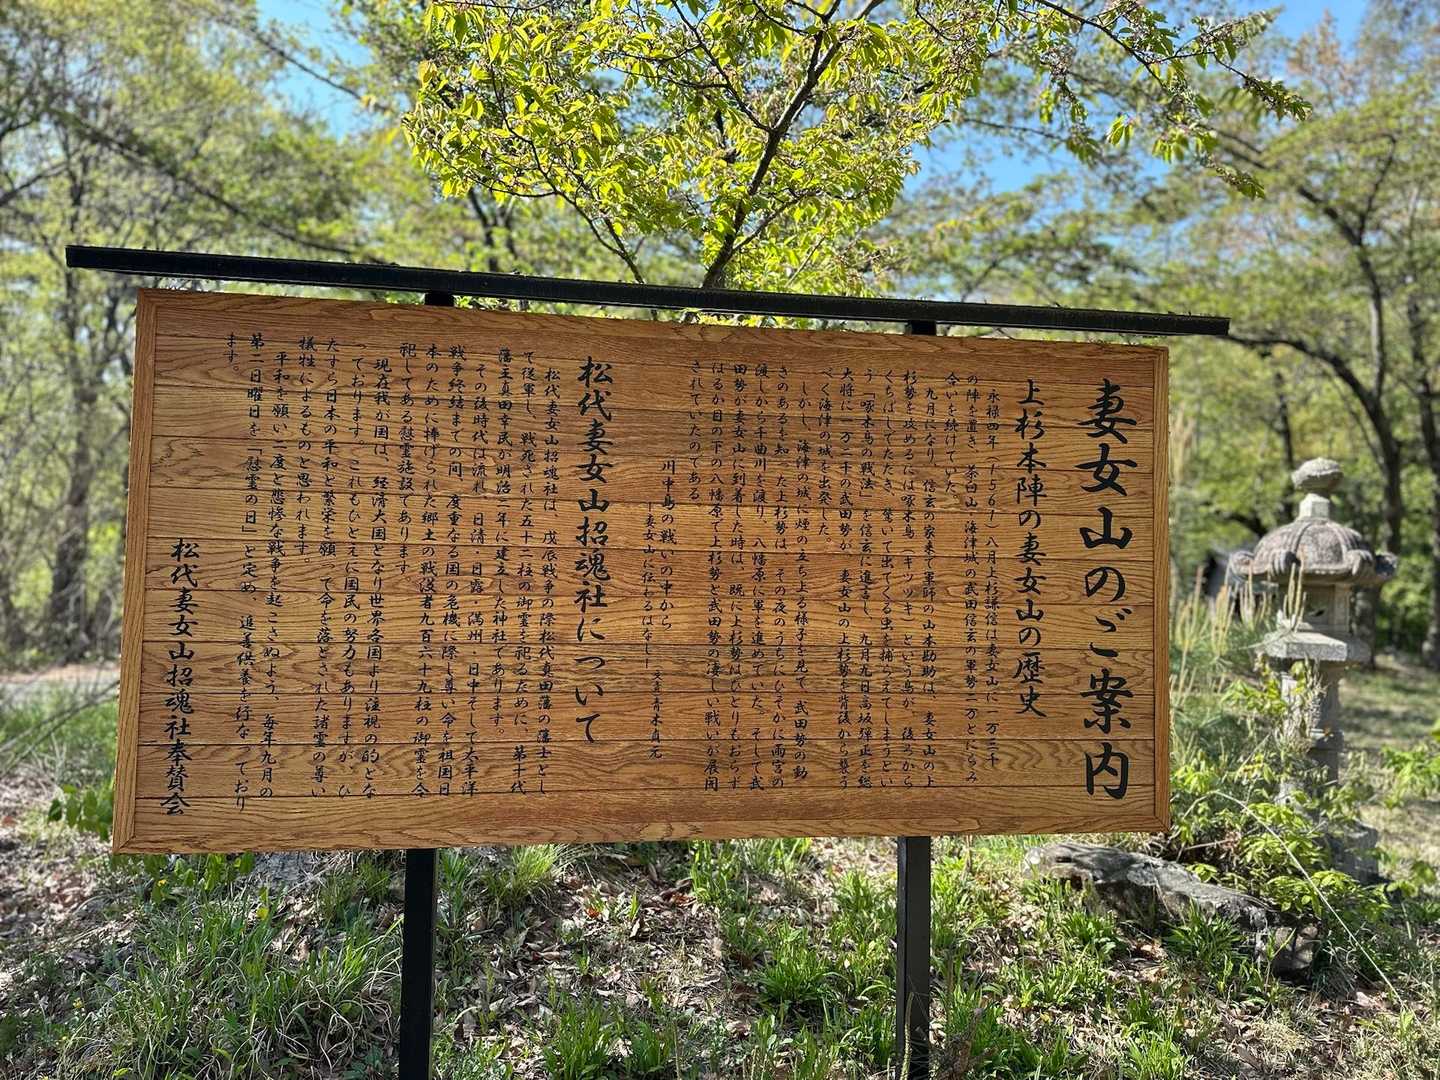 妻女山のご案内
上杉本陣の妻女山の歴史
永禄四年(1561)八月上杉謙信は妻女山に一万三千
の陣を置き、茶臼山、海津城の武田信玄の軍勢二万とにらみ
合いを続けていた。
九月になり、信玄の家来で軍師の山本勘助は、妻女山の上
杉勢を攻めるには啄木鳥(キツツキ)という鳥が、後ろから
くちばしでたたき、驚いて出てくる虫を捕らえてしまうとい
う「啄木鳥の戦法」を信玄に進言し、九月九日高坂弾正を総
大将に一万二千の武田勢が、妻女山の上杉勢を背後から襲う
べく海津の城を出発した。
しかし、海津の城に煙の立ち上る様子を見て、武田勢の動
きのあるを知った上杉勢は、その夜のうちにひそかに雨宮の
渡しから千曲川を渡り、八幡原に軍を進めていた。そして武
田勢が妻女山に到着した時は、既に上杉勢はひとりもおらず
はるか目の下の八幡原で上杉勢と武田勢の凄しい戦いが展開
されていたのである
川中島の戦いの中から
ー妻女山に伝わるはなしー 文責 青木貞元
松代妻女山招魂社について
松代妻女山招魂社は、戊辰戦争の際松代真田藩の藩士とし
て従軍し、戦死された五十二柱の御霊を祀るために、第十代
藩主真田幸民が明治二年に建立した神社であります。
その後時代は流れ、日清・日露・満州・日中そして太平洋
戦争終結までの間、度重なる国の危機に際し尊い命を祖国日
本のために捧げられた郷土の戦没者九百六十九柱の御霊を合
祀してある慰霊施設であります
現在我が国は、経済大国となり世界各国より注視の的とな
っております。これもひとえに国民の努力もありますが、ひ
たすら日本の平和と繁栄を願って命を落とされた諸霊の尊い
犠牲によるものと思われます。
平和を願い二度と悲惨な戦争を起こさぬよう、毎年九月の
第二日曜日を「慰霊の日」と定め、追善供養を行なっており
ます。
松代妻女山招魂社奉賛会